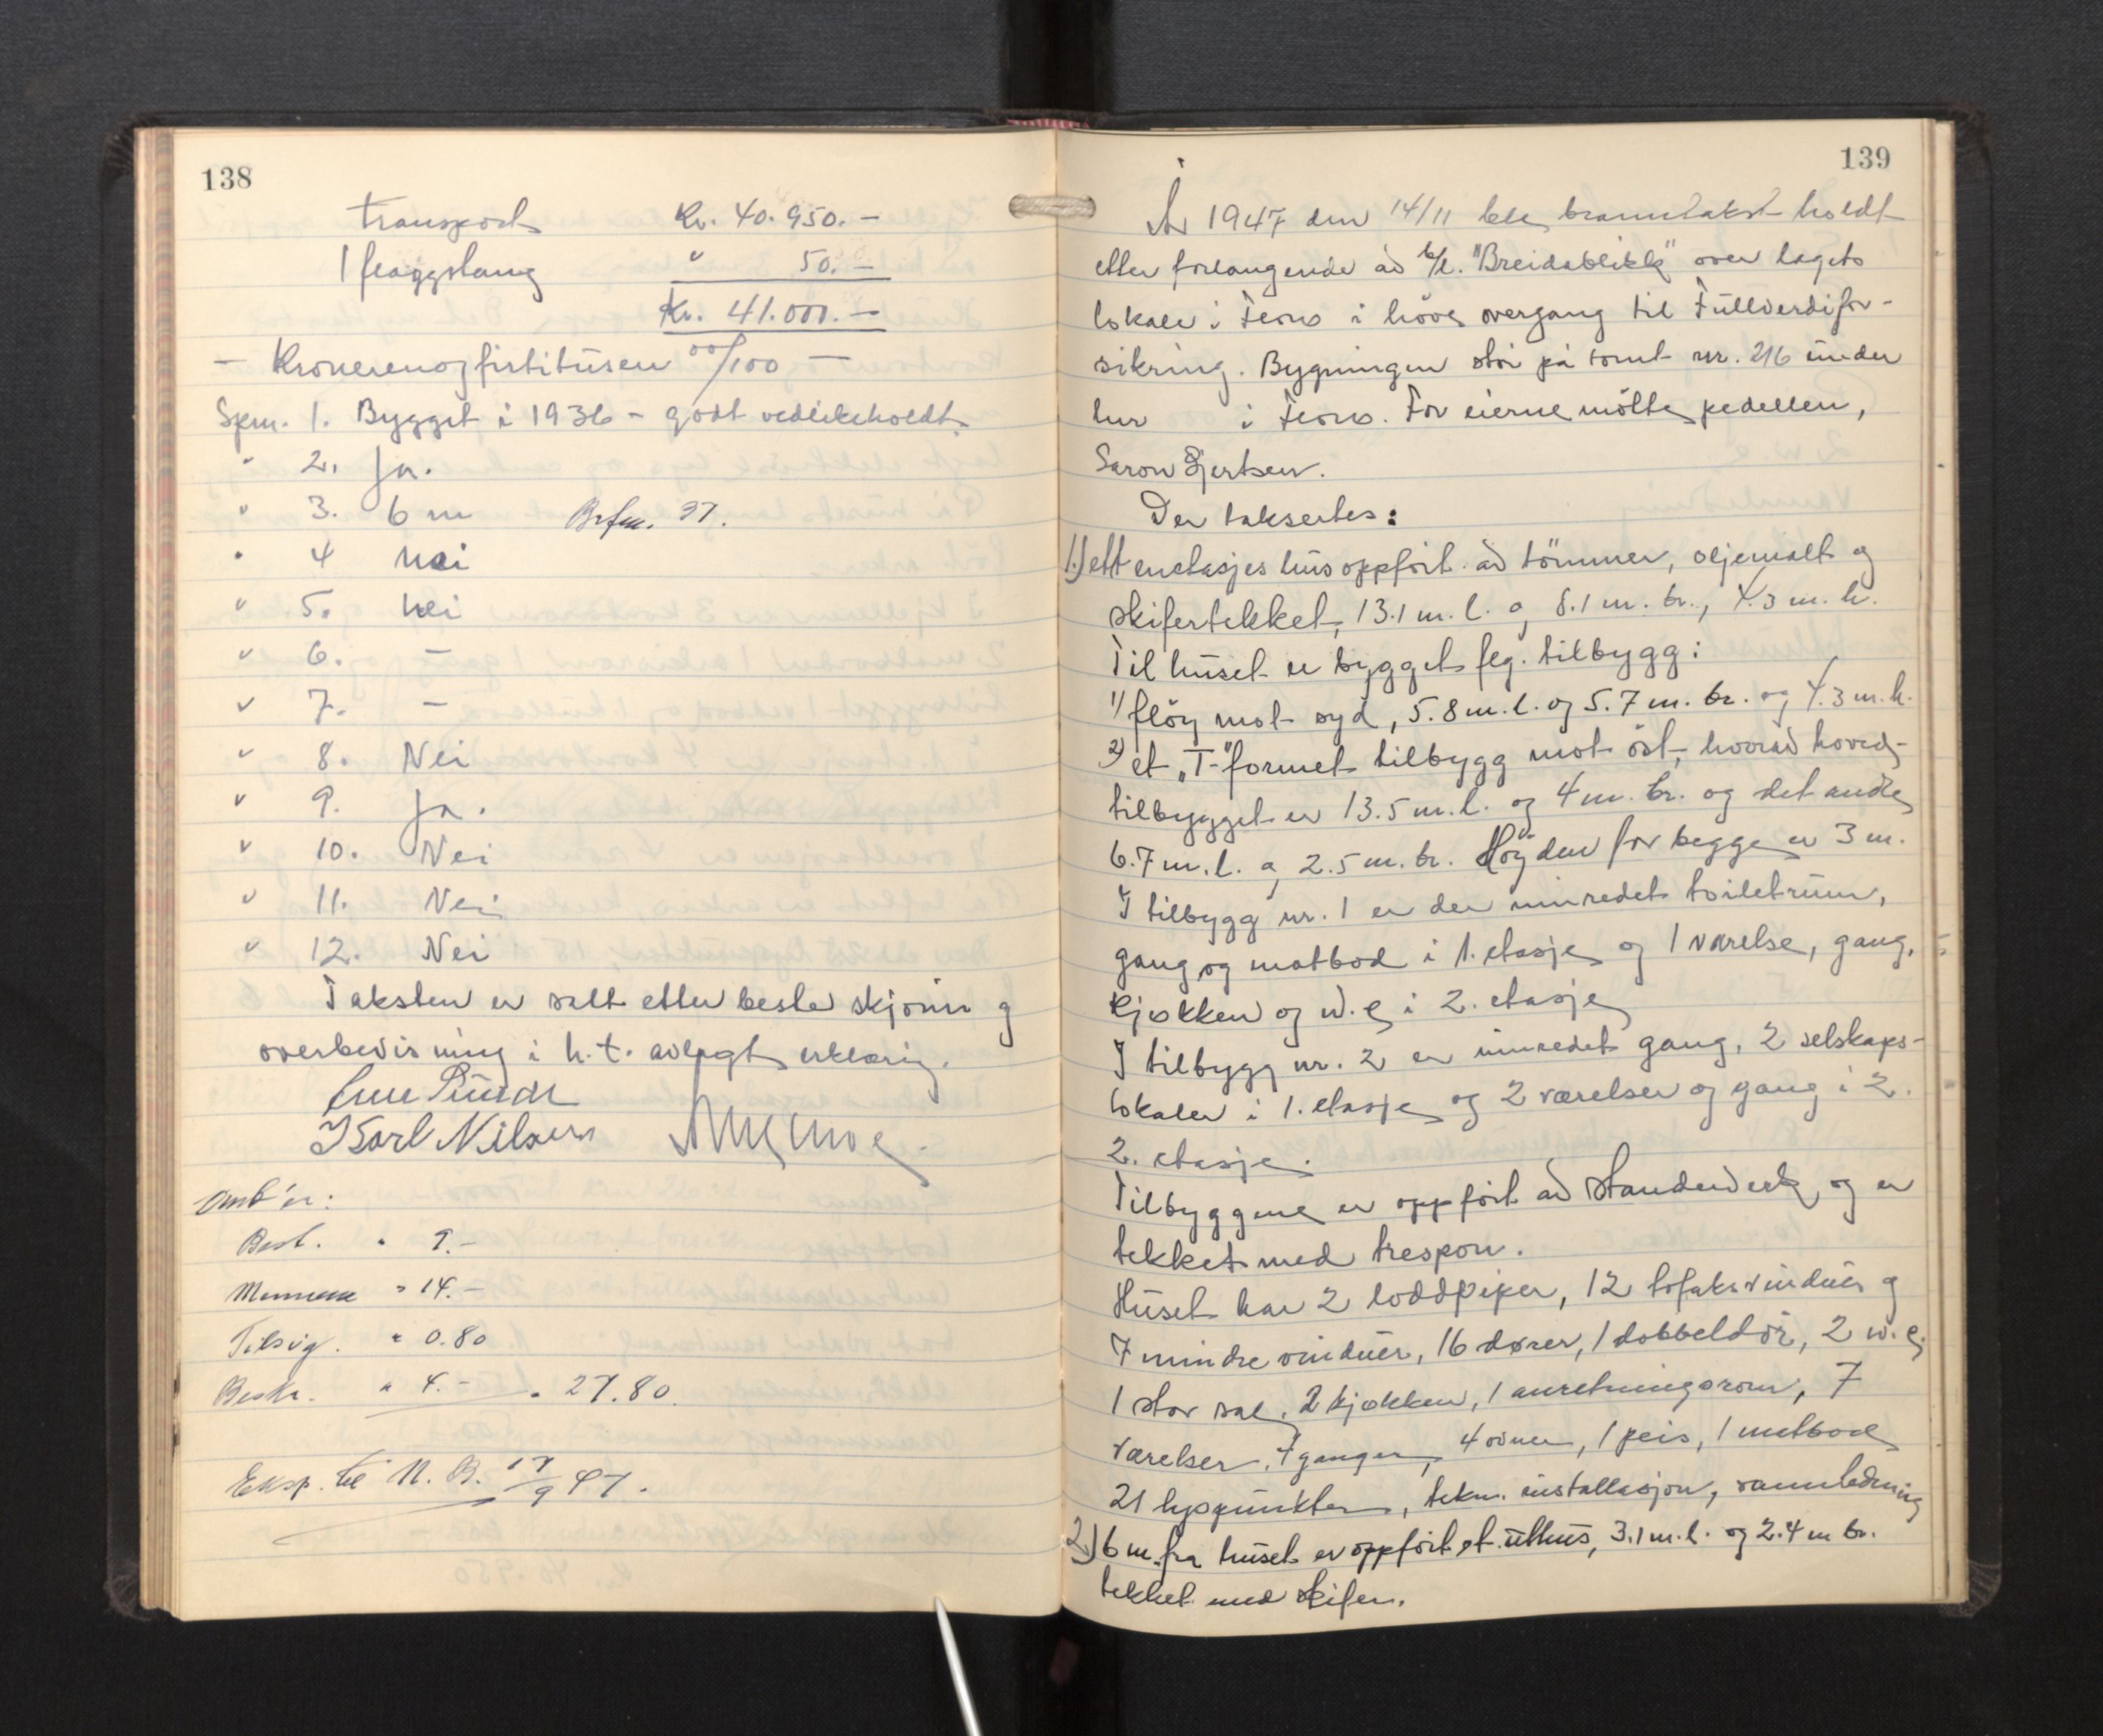 138
Transport Kr. 40.950.-
1 flaggstang " 50.-
Kr. 41.000.-
- Kronerenogførtitusen 00/100 -
Spm. 1. Bygget i 1936 - godt vedlikeholdt.
" 2. Ja.
" 3. 6 m Brfm. 37.
" 4 Nei
" 5. Nei
" 6. -
" 7. -
" 8. Nei
" 9. Ja.
" 10. Nei
" 11. Nei
" 12. Nei
Taksten er satt etter beste skjönn og
overbevisning i h.t. avlagt erklæring.
Karl Nilsen
Omk'er:
Best. " 9.-
Mennene " 14.-
Tilsig. " 0.80
Beskr. " 4.- " 27.80
Eksp. til N.B. 17/9 47.
139
År 1947 den 14/11 ble branntakst holdt
etter forlangende av b/l. "Breidablikk" over lagets
lokale i Feios i höve overgang til Fullverdifor-
sikring. Bygningen står på tomt nr. 216 under
hur i Feios. For eierne mötte pedellen,
Saron Gjertsen.
Der taksertes:
1.) ett enetasjes hus oppfört av tömmer, oljemalt og
skifertekket, 13.1 m. l. og 8.1 m. br., 4.3 m. h.
Til huset er bygget flg. tilbygg:
1) flöy mot syd, 5.8 m. l. og 5.7 m. br. og 4.3 m. h.
2) et „T"formet tilbygg mot öst, hvorav hoved-
tilbygget er 13.5 m. l. og 4 m. br. og det andre
6.7 m. l. og 2.5 m. br. Höyden for begge er 3 m.
I tilbygg nr. 1 er der innredet toiletrum,
gang og matbod i 1. etasje og 1 værelse, gang,
kjøkken og w.c. i 2. etasje
I tilbygg nr. 2 er innredet gang, 2 selskaps-
lokaler i 1. etasje og 2 værelser og gang i 2.
2. etasje.
Tilbyggene er oppfört av standerverk og er
tekket med trespon.
Huset har 2 loddpiper, 12 tofaksvinduer og
7 mindre vinduer, 16 dører, 1 dobbeldör, 2 w.c.
1 stor sal, 2 kjøkken, 1 anretningsrom, 7
værelser, 4 ganger, 4 ovner, 1 peis, 1 matbod
21 lyspunkter, tekn. installasjon, vannledning
2.) 6 m. fra huset er oppfört et uthus, 3.1 m. l. og 2.4 m br.
tekket med skifer.